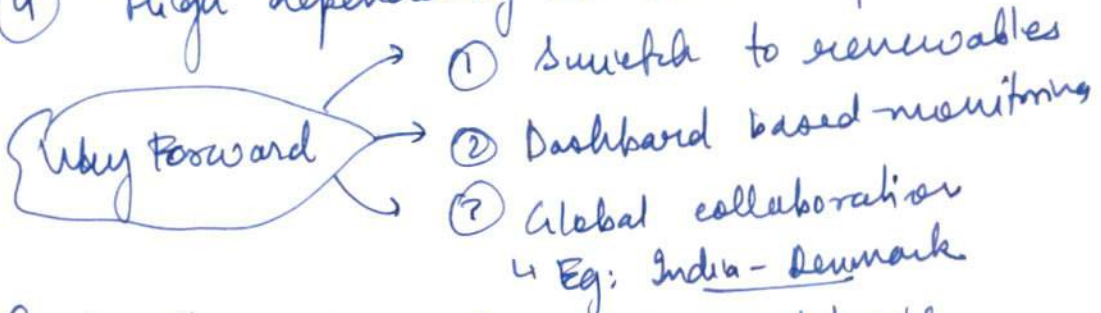 ④ High dependency
Way Forward
① Switch to renewables
② Dashboard based monitoring
③ Global collaboration
↳ Eg: India - Denmark